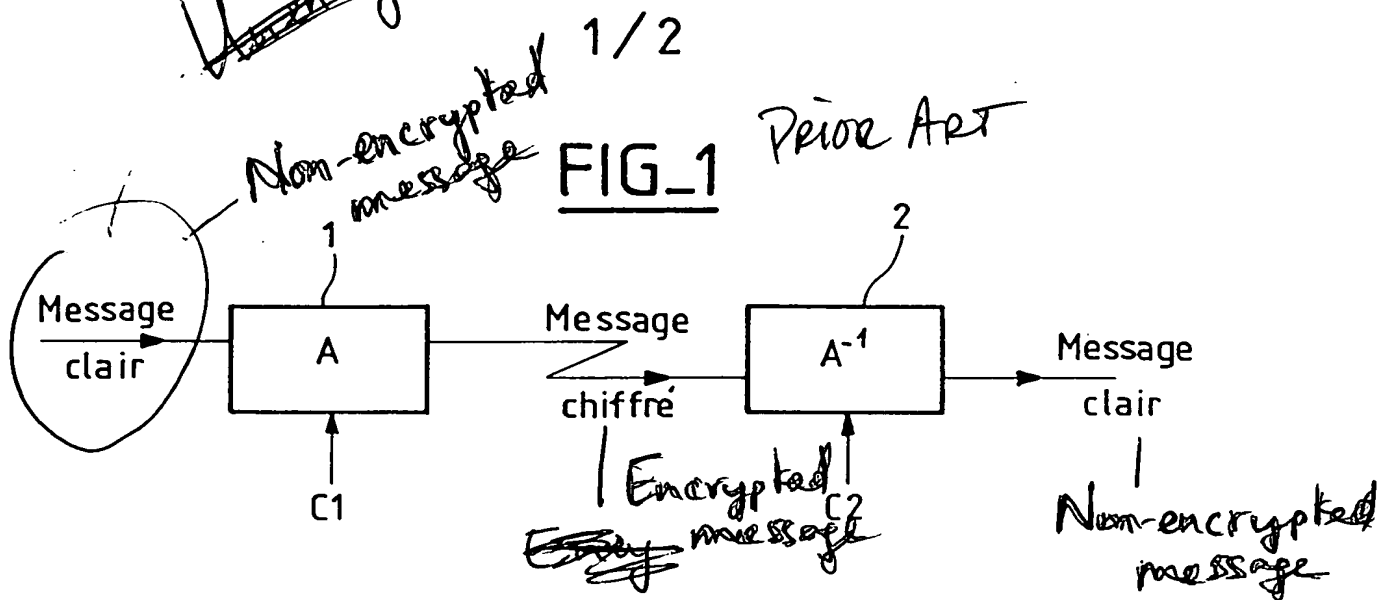 1/2
Non-encrypted
message
FIG_1
Prior Art
1
2
Message
clair
A
Message
chiffré
A-1
Message
clair
C1
C2
Encrypted
message
Non-encrypted
message